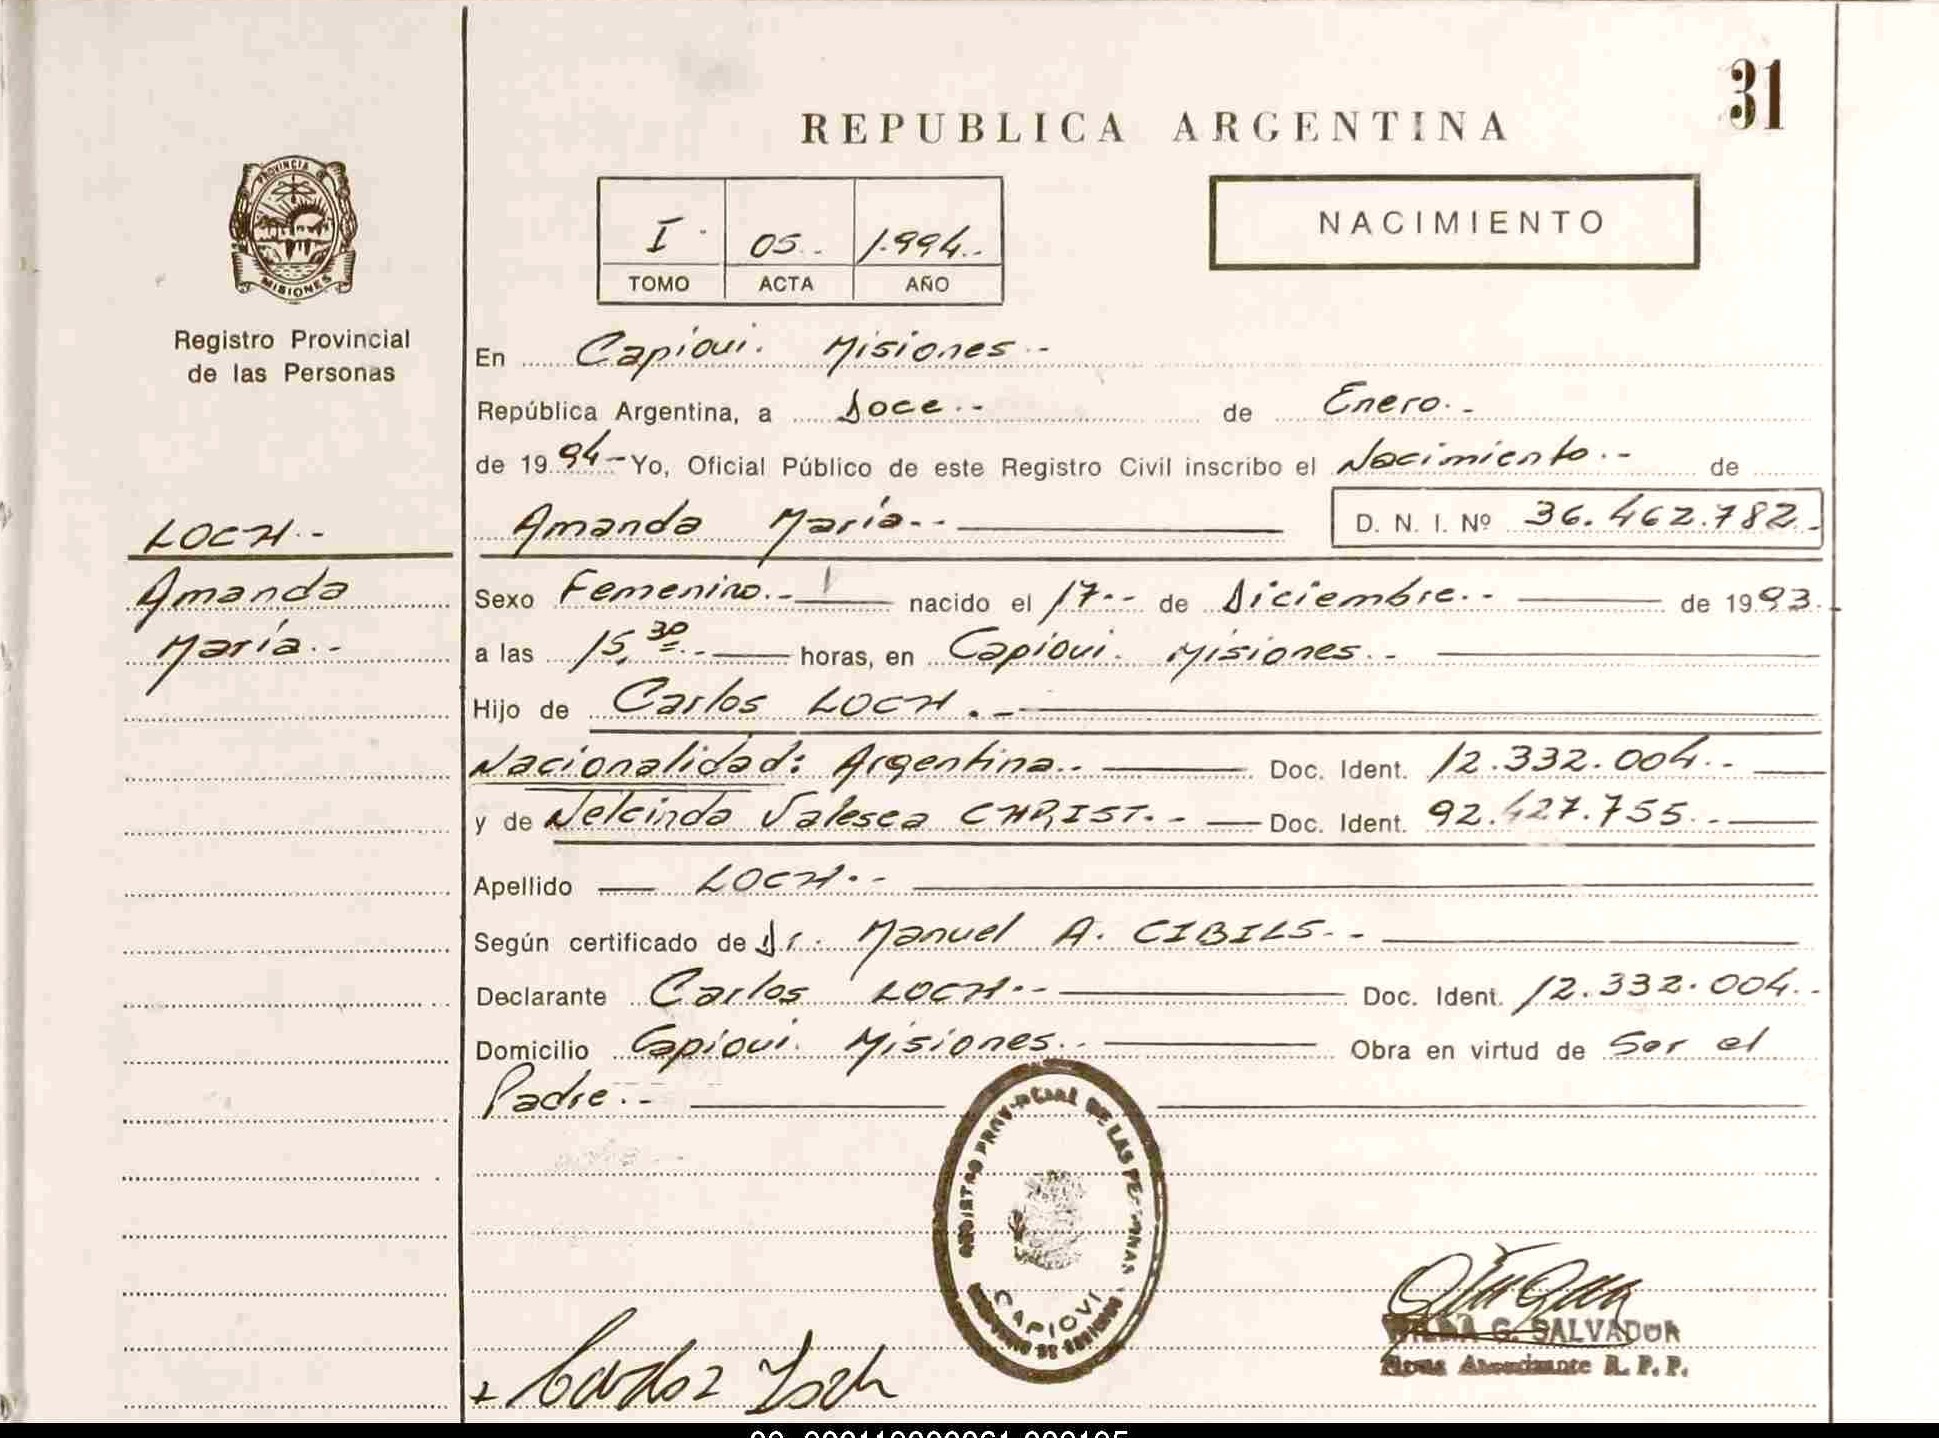 31
REPUBLICA ARGENTINA
PROVINCIA
MISIONES
Registro Provincial
de las Personas
I. 05.. 1.994..
TOMO ACTA AÑO
NACIMIENTO
En Capiovi. Misiones.-
República Argentina, a Doce.- de Enero.-
de 1994-Yo, Oficial Público de este Registro Civil inscribo el Nacimiento.- de
LOCH.-
Amanda
María.-
Amanda María.- D. N. I. Nº 36.462.782.-
Sexo Femenino.- nacido el 17.- de Diciembre.- de 1993.-
a las 15,30.- horas, en Capiovi. Misiones.-
Hijo de Carlos LOCH.-
Nacionalidad: Argentina.- Doc. Ident. 12.332.004.-
y de Nelcinda Valesca CHRIST.- Doc. Ident. 92.427.755.-
Apellido LOCH.-
Según certificado de Dr. Manuel A. CIBILS.-
Declarante Carlos LOCH.- Doc. Ident. 12.332.004.-
Domicilio Capiovi. Misiones.- Obra en virtud de Ser el
Padre.-
REGISTRO PROVINCIAL DE LAS PERSONAS
CAPIOVI
G. SALVADOR
R. P. P.
Carlos Loch